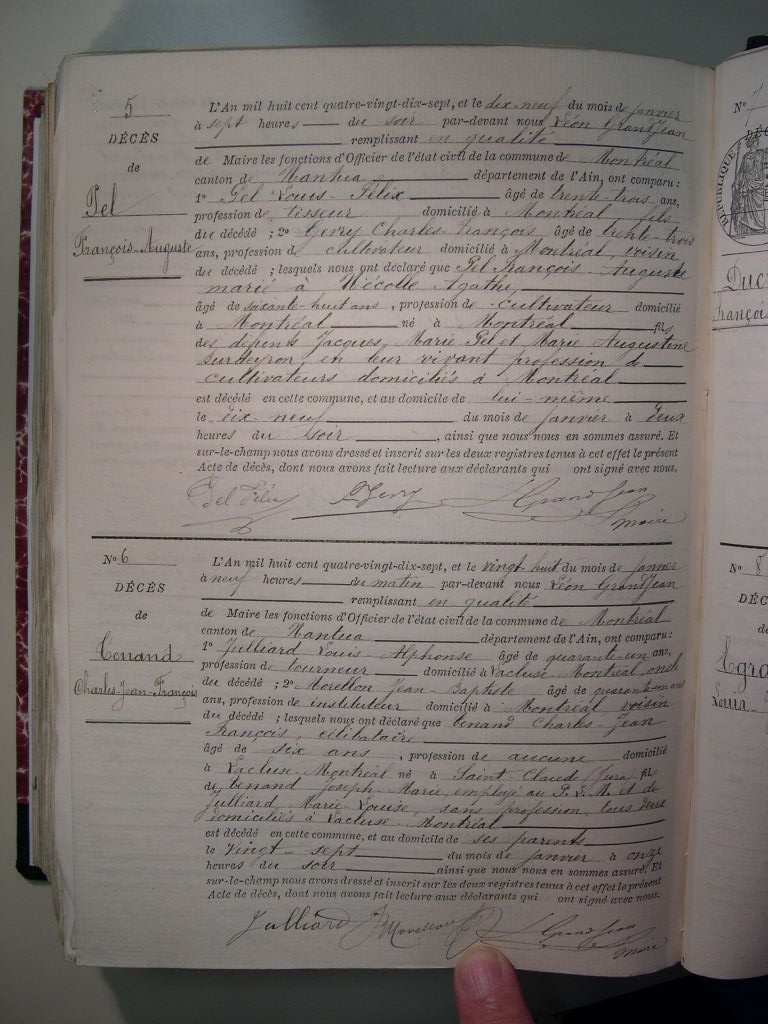 5
DÉCÈS
de
Pel
François-Auguste
L'An mil huit cent quatre-vingt-dix-sept, et le dix-neuf du mois de janvier
à sept heures du soir par-devant nous Léon Grandjean
remplissant en qualité
de Maire les fonctions d'Officier de l'état civil de la commune de Montréal
canton de Nantua département de l'Ain, ont comparu :
1° Pel Louis-Félix âgé de trente-trois ans,
profession de tisseur domicilié à Montréal fils
du décédé ; 2° Gevry Charles-François, âgé de trente-trois
ans, profession de cultivateur domicilié à Montréal, voisin
du décédé ; lesquels nous ont déclaré que Pel François-Auguste
marié à Agathe,
âgé de soixante-huit ans, profession de cultivateur domicilié
à Montréal né à Montréal fils
des défunts Jacques, Marie Pel et Marie Augustine
en leur vivant profession de
cultivateurs domiciliés à Montréal
est décédé en cette commune, et au domicile de lui-même
le dix-neuf du mois de janvier à deux
heures du soir, ainsi que nous nous en sommes assuré. Et
sur-le-champ nous avons dressé et inscrit sur les deux registres tenus à cet effet le présent
Acte de décès, dont nous avons fait lecture aux déclarants qui ont signé avec nous.
Pel Félix Gevry Grandjean
maire
N° 6
DÉCÈS
de
Tenand
Charles-Jean-François
L'An mil huit cent quatre-vingt-dix-sept, et le vingt-huit du mois de janvier
à neuf heures du matin par-devant nous Léon Grandjean
remplissant en qualité
de Maire les fonctions d'Officier de l'état civil de la commune de Montréal
canton de Nantua département de l'Ain, ont comparu :
1° Julliard Louis-Alphonse âgé de quarante-un ans,
profession de tourneur domicilié à Lacluse-Montréal, oncle
du décédé ; 2° Morellon Jean-Baptiste âgé de ans
ans, profession de instituteur domicilié à Montréal voisin
du décédé ; lesquels nous ont déclaré que Tenand Charles-Jean
François, célibataire
âgé de six ans, profession de aucune domicilié
à Lacluse-Montréal né à Saint-Claude (Jura) fils
de Tenand Joseph-Marie, employé au P. L. M. et de
Julliard Marie-Louise, sans profession, tous deux
domiciliés à Lacluse-Montréal
est décédé en cette commune, et au domicile de ses parents
le vingt-sept du mois de janvier à onze
heures du soir, ainsi que nous nous en sommes assuré. Et
sur-le-champ nous avons dressé et inscrit sur les deux registres tenus à cet effet le présent
Acte de décès, dont nous avons fait lecture aux déclarants qui ont signé avec nous.
Julliard Morellon Grandjean
maire
N°
RÉPUBLIQUE
François
N° 8